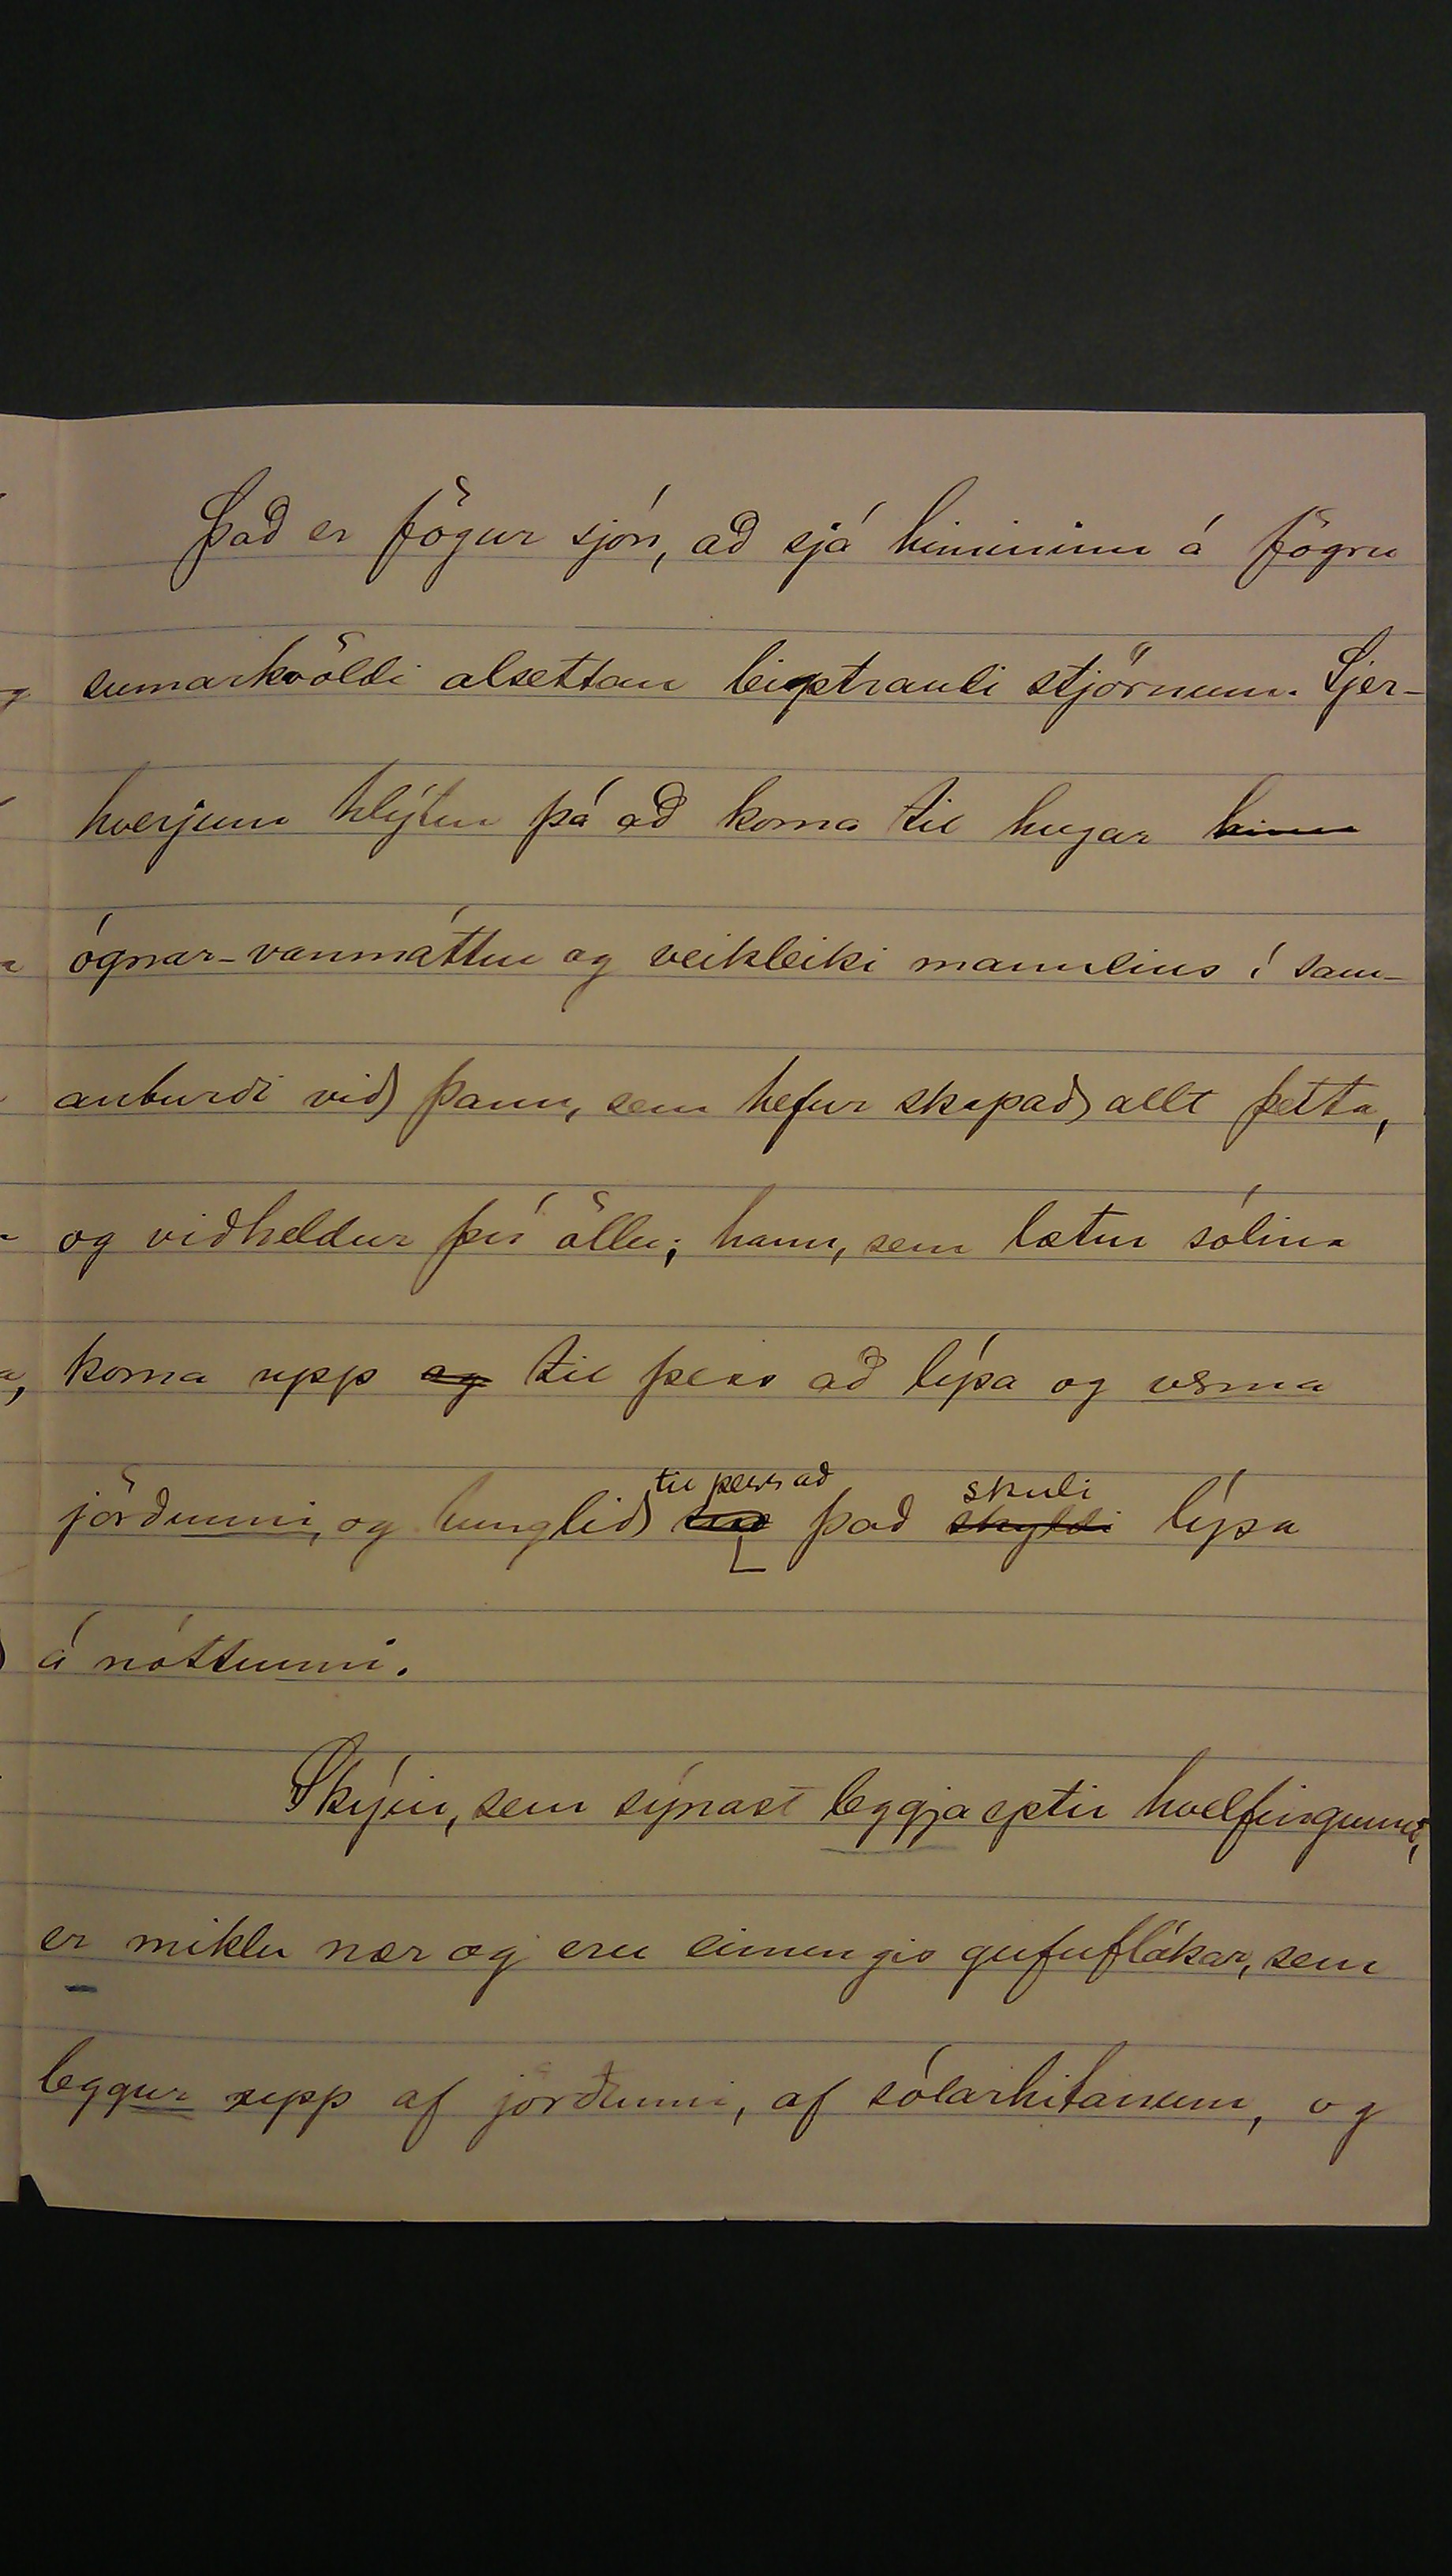 Það er fögur sjón, að sjá himininn á fögru
sumarkvöldi alsettan leiptrandi stjörnum. Sjer-
hverjum hlýtur þá að koma til hugar hinn
ógnar-vanmáttur og veikleiki mannsins í sam-
anburði við þann, sem hefur skapað allt þetta,
og viðheldur því öllu; hann, sem lætur sólina
koma upp og til þess að lýsa og verma
til þess að skuli
jörðunni, og tunglið það skyldi lýsa
á nóttunni.
Skýin, sem sýnast leggja eptir hvelfingunni,
er miklu nær og eru einungis gufuflókar, sem
leggur upp af jörðunni, af sólarhitanum, og